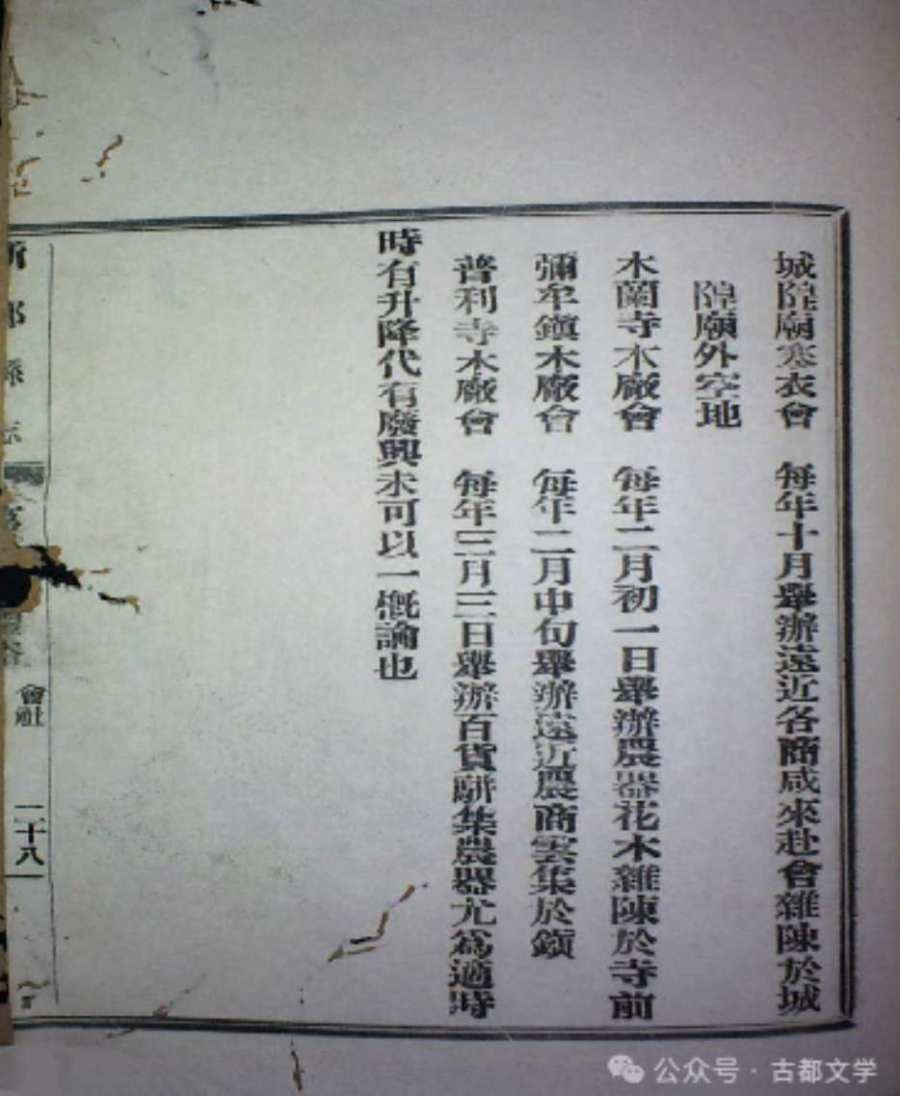 城隍廟寒衣會　每年十月舉辦遠近各商咸來赴會雜陳於城
隍廟外空地
木蘭寺木廠會　每年二月初一日舉辦農器花木雜陳於寺前
彌牟鎮木廠會　每年二月中旬舉辦遠近農商雲集於鎮
普利寺木廠會　每年三月三日舉辦百貨駢集農器尤爲適時
時有升降代有廢興未可以一槪論也
新都縣志
會社
二十八
公众号·古都文学